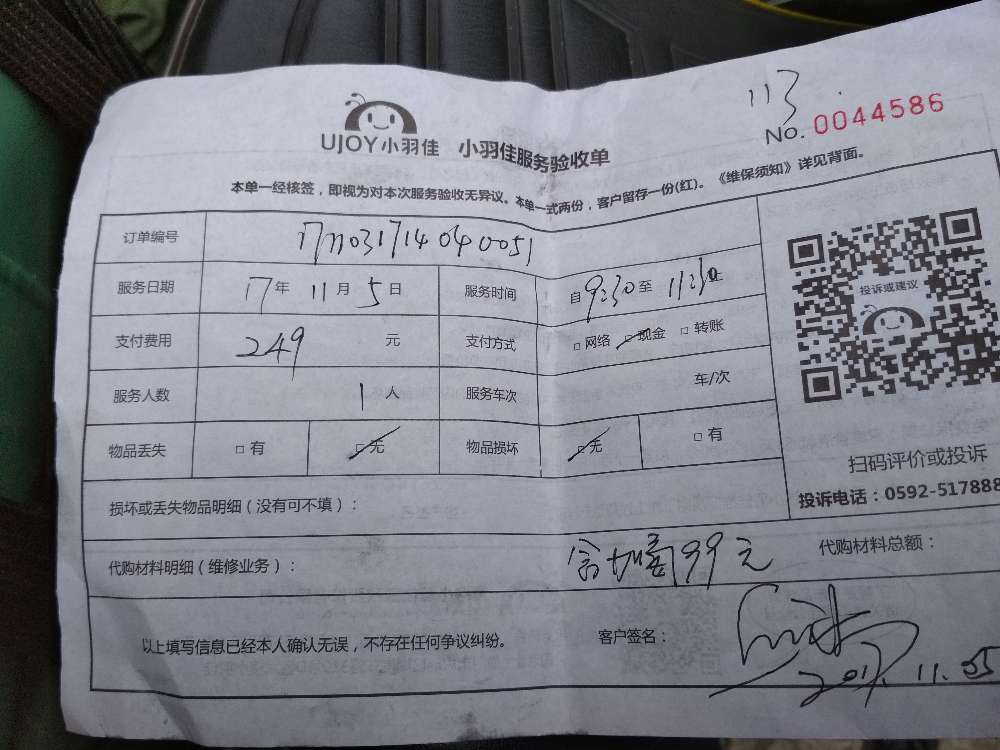 113
No. 0044586
UJOY小羽佳 小羽佳服务验收单
本单一经核签，即视为对本次服务验收无异议。本单一式两份，客户留存一份(红)。《维保须知》详见背面。
订单编号 1711031714040051
服务日期 17年 11月 5日 服务时间 自9:30至 11:30止
支付费用 249 元 支付方式 □网络 □现金 □转账
服务人数 1人 服务车次 车/次
物品丢失 □有 □无 物品损坏 □无 □有
投诉或建议
扫码评价或投诉
投诉电话：0592-517888
损坏或丢失物品明细（没有可不填）：
代购材料明细（维修业务）： 99元 代购材料总额：
以上填写信息已经本人确认无误，不存在任何争议纠纷。 客户签名：
2017.11.05